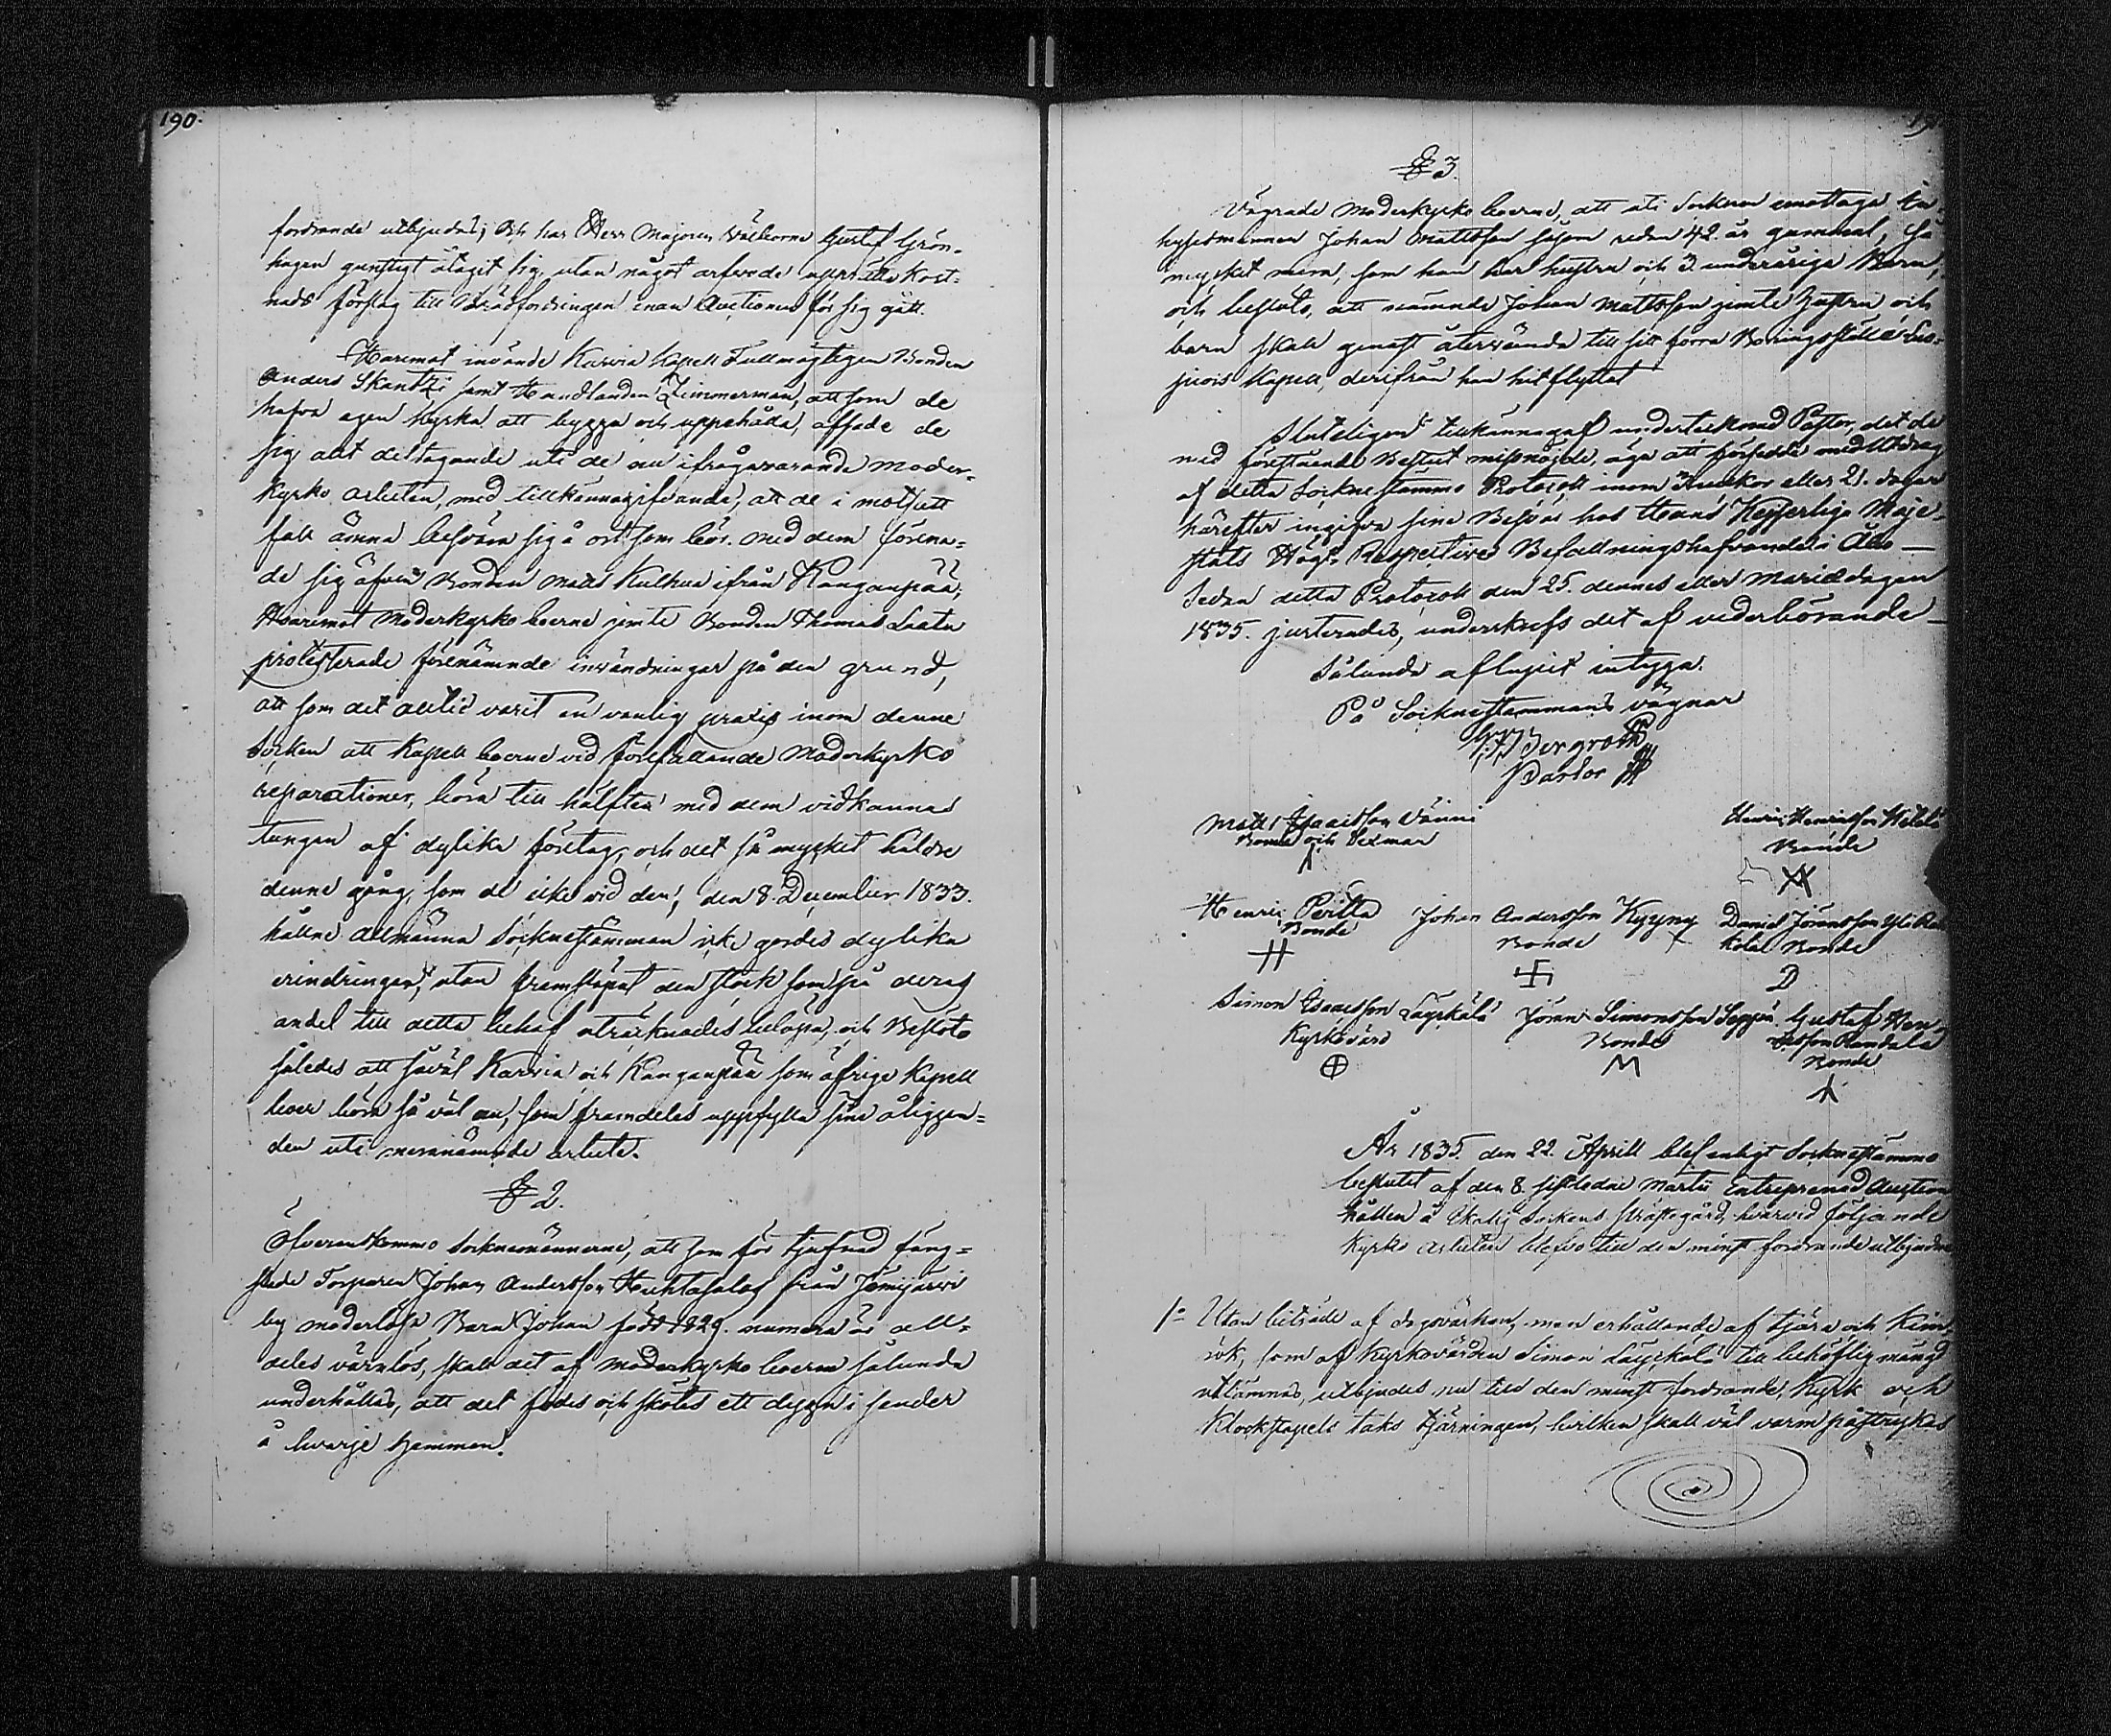 190.
fordrande utbjudas; Och har Herr Majoren Välborne Gustaf Grön=
hagen gunstigt åtagit sig, utan något arfvode upprätta Kost=
nads förslag till Brädfodringen innan Auctionen för sig gått.
Häremot invände Karvia Kapell Fullmägtigen Bonden
Anders Skantzi samt Handlanden Zimmerman, att som de
hafva egen kyrka att bygga och uppehålla, afsade de
sig allt deltagande uti de nu ifrågavarande moder-
Kyrko arbeten, med tillkännagifvande, att de i motsatt
fall ämna besvära sig å ort som bör. Med dem förena=
de sig äfven Bonden Matts Kulhua ifrån Kanganpää;
Hvaremot Moderkyrko boerne jemte Bonden Thomas Laatu
protesterade förenämnde invändningar på den grund,
att som det alltid varit en vanlig praxis inom denne
Socken att Kapell boerne vid förefallande Moderkyrko
reparationer, böra till hälften med dem vidkännas
tungan af dylika företag, och det så mycket häldre
denne gång, som de icke vid den, den 8. December 1833.
hållne Allmänna Sockne stämman icke gjordes dylika
erindringar, utan framsläpat den stock som på deras
andel till detta behof uträknades belöpa, och Besluto
således att såväl Karvia och Kangaspää som öfrige Kapell
boer böra så väl nu, som framdeles uppfylla sine åliggan=
den uti mernämnde arbete.
§ 2.
Öfverenskommo Socknemännerne, att som för tjufnad fäng=
slade Torparen Johan Andersson Huhtasalos från Jämijärvi
by moderlösa Barn Johan född 1829. numera är all=
deles värnlös, skall det af moderkyrko boerne sålunda
underhållas, att det födes och skötes ett dygn i sender
å hvarje hemman.
§ 3.
Vägrade Moderkyrko boerne, att uti Socknen emottaga In
hysesmannen Johan Mattsson såsom redan 42. år gammal, så
mycket mera, som han har hustru och 3. underåriga Barn,
och besluto, att nämnde Johan Mattsson jemte Hustru och
barn skall genast återvända till sitt förra Boningsställe
Kapell, derifrån han hitflyttat
Sluteligen tillkännagaf undertecknad Pastor, det de
med förestående Beslut missnöjde, äga att försedde med Utdrag
af detta Sockne stämmo Protocoll inom Trenne veckor eller 21. dagar
härefter ingifva sine Besvär hos Hans Kejserliga Maje-
stäts Högt Respective Befallningshafvande i Åbo —
Sedan detta Protocoll den 25. dennes eller Mariædagen
1835. justerades, underskrefs det af vederbörande —
Sålunda aflupit intyga.
På Socknestämmans vägnar
Bergroth
Pastor
Matts Isacsson Vänni
Bonde och Sexman
Henric Henricsson
Bonde
Henric Perttu
Bonde
Johan Andersson Kyyny
Bonde
Daniel Jöransson Yli
Bonde
D
Simon Isacsson Läyskälä
Kyrkovärd
Jöran Simonsson Seppä
Bonde
M
Gustaf Hen-
ricsson Randala
Bonde
År 1835. den 22. Aprill blef enligt Socknestämmo
beslutet af den 8. sistledne Martii Entreprenad Auction
hållen å Ikalis Sockens prästegård, hvarvid följande
Kyrko arbeten blefvo till den minst fordrande utbjudne
1º Utan biträde af dagsverken, men erhållande af tjära och Kim-
rök, som af Kyrkovärden Simon Läyskälä till behöflig mängd
utlämnas, utbjudes nu till den minst fordrande, Kyrk och
Klockstapels taks tjärningen, hvilken skall väl varm påstrykas